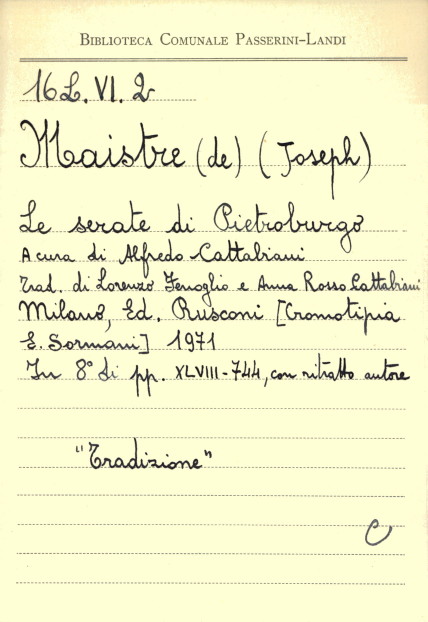 BIBLIOTECA COMUNALE PASSERINI-LANDI
16L. VI. 2
Maistre (de) (Joseph)
Le serate di Pietroburgo
A cura di Alfredo Cattabiani
Trad. di Lorenzo Fenoglio e Anna Rosso Cattabiani
Milano, Ed. Rusconi [Cromotipia
E. Sormani] 1971
In 8° di pp. XLVIII-744, con ritratto autore
"Tradizione"
C